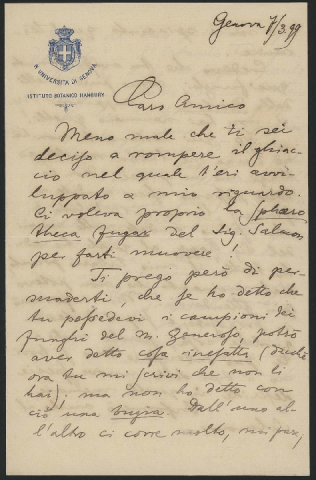 Genova 7/3.99
R. UNIVERSITÀ DI GENOVA
ISTITUTO BOTANICO HANBURY
Caro Amico
Meno male che ti sei
deciso a rompere il ghiac-
cio nel quale t'eri avvi-
luppato a mio riguardo.
Ci voleva proprio la Sphaero
theca fugax del Sig. Salmon
per farti muovere!
Ti prego però di per-
suaderti, che se ho detto che
tu possedevi i campioni dei
funghi del M. Generoso, potrò
aver detto cosa inesatta (dacchè
ora tu mi scrivi che non li
hai); ma non ho detto con
ciò una bugia. Dall'uno al-
l'altro ci corre molto, mi pare,